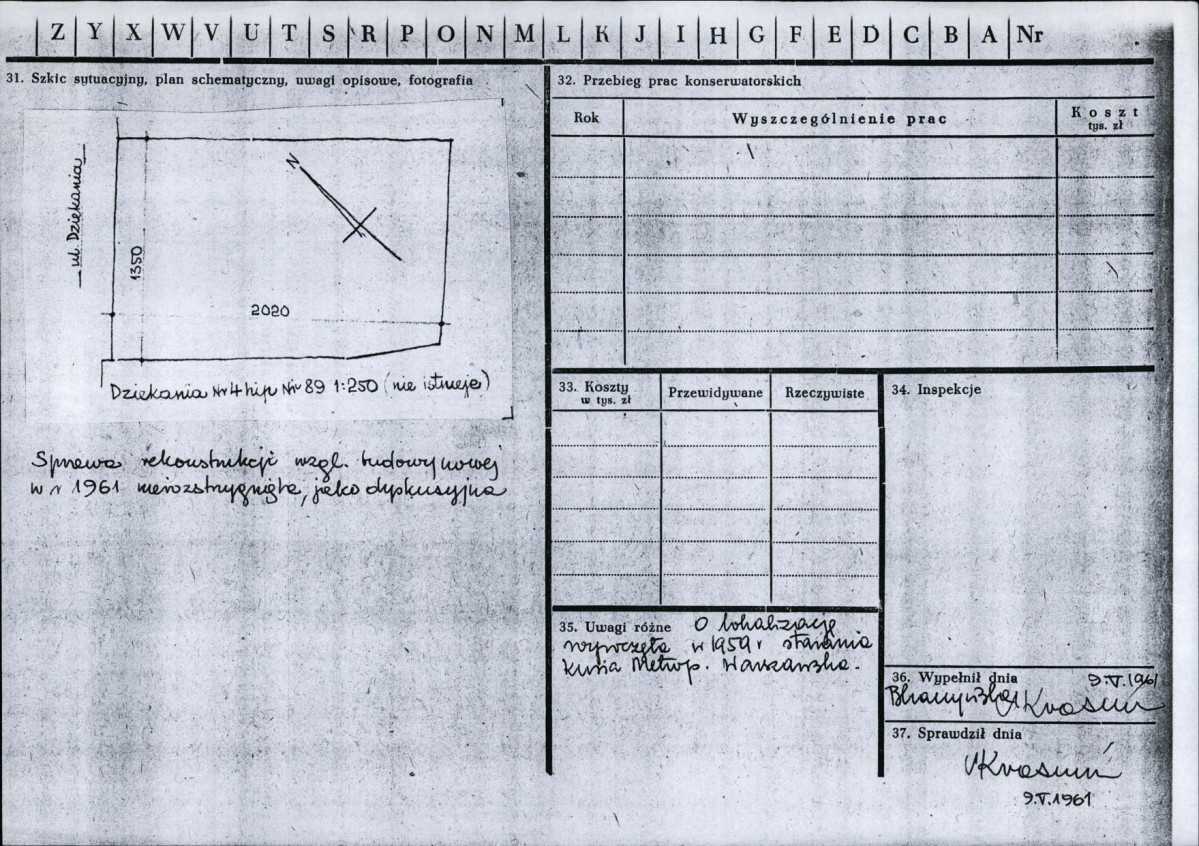 Z Y X W V U T S R P O N M L K J I H G F E D C B A Nr
31. Szkic sytuacyjny, plan schematyczny, uwagi opisowe, fotografia
ul. Dziekania
1350
N
2020
Dziekania Nr 4 hip Nr 89 1:250 (nie istnieje)
Sprawa rekonstrukcji wzgl. budowy nowej
w r 1961 nierozstrzygnięta, jako dyskusyjna
32. Przebieg prac konserwatorskich
Rok
Wyszczególnienie prac
Koszt
tys. zł
33. Koszty
w tys. zł
Przewidywane
Rzeczywiste
34. Inspekcje
35. Uwagi różne O lokalizację
wszczęła w 1959 r starania
Kuria Metrop. Warszawska.
36. Wypełnił dnia 9.V.1961
37. Sprawdził dnia
9.V.1961